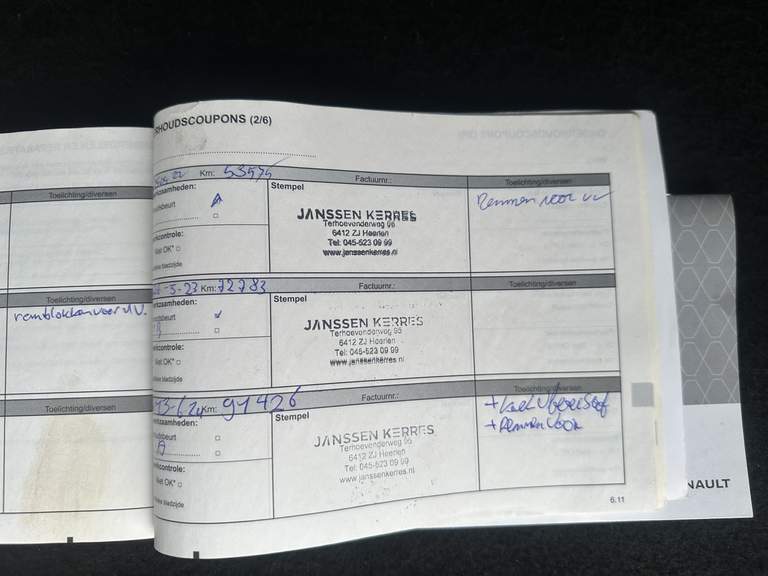 RHOUDSCOUPONS (2/6)
Toelichting/diversen
Toelichting/diversen
remblokken voor VV.
Toelichting/diversen
22 Km: 53575
Factuurnr.:
Toelichting/diversen
kzaamheden:
beurt
Stempel
JANSSEN KERRES
Terhoevenderweg 95
6412 ZJ Heerlen
Tel: 045-523 09 99
www.janssenkerres.nl
Remmen voor VV
controle:
Niet OK*
bladzijde
-5-23 Km: 72783
Factuurnr.:
Toelichting/diversen
kzaamheden:
beurt
Stempel
JANSSEN KERRES
Terhoevenderweg 95
6412 ZJ Heerlen
Tel: 045-523 09 99
www.janssenkerres.nl
controle:
Niet OK*
bladzijde
13-6-24 Km: 91426
Factuurnr.:
Toelichting/diversen
kzaamheden:
beurt
A
Stempel
JANSSEN KERRES
Terhoevenderweg 95
6412 ZJ Heerlen
Tel: 045-523 09 99
www.janssenkerres.nl
+ koelvloeistof
+ Remmen voor
controle:
Niet OK*
bladzijde
6.11
NAULT